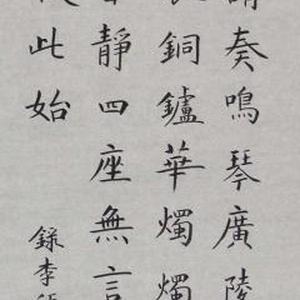 請奏鳴琴廣陵
銅鑪華燭燭
靜四座無言
此始
錄李